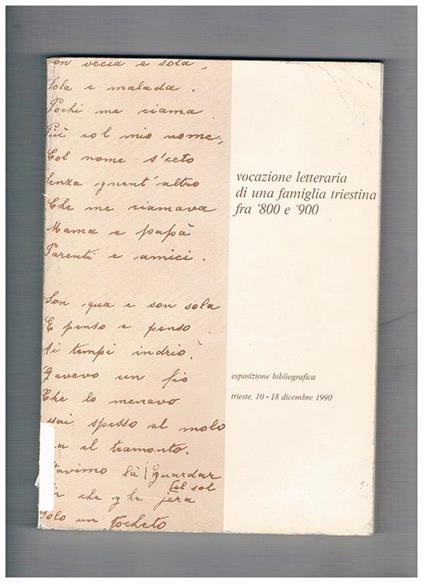 on vecia e sola,
Sola e malada.
Pochi me ciama
Più col mio nome,
Col nome s'ceto
Senza quent'altro
Che me ciamava
Mama e papà
Parenti e amici.
Son qua e son sola
E penso e penso
Ai tempi indrio.
Gavevo un fio
Che lo menavo
suai spesso al molo
il tramonto.
Stavimo là guardar
in che ghe jera el sol
Solo un tocheto
vocazione letteraria
di una famiglia triestina
fra '800 e '900
esposizione bibliografica
trieste, 10 - 18 dicembre 1990